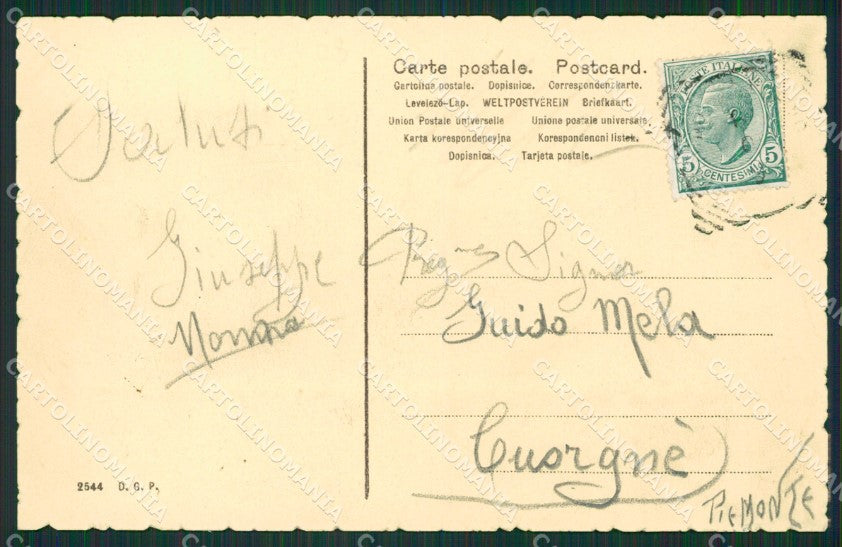 Saluti
Giuseppe
Carte postale. Postcard.
Cartolina postale. Dopisnice. Correspondenzkarte.
Levelező-Lap. WELTPOSTVEREIN Briefkaart.
Union Postale universelle Unione postale universale
Karta korespondencyjna Korespondenoni listek.
Dopisnica. Tarjeta postale.
POSTE ITALIANE
5 CENTESIMI 5
Signor
Guido Mela
Cuorgnè
PIEMONTE
2544 D. G. P.
CARTOLINOMANIA